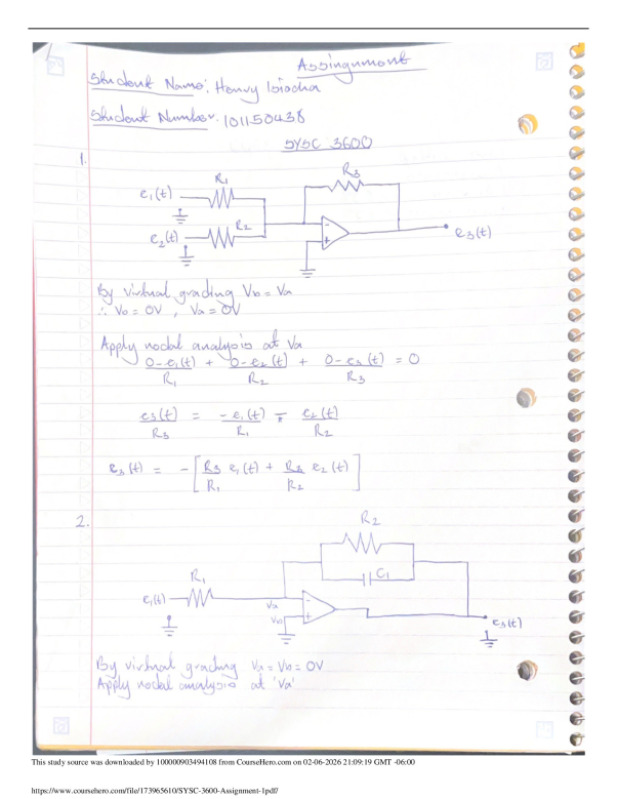 Assingnment
Student Name: Henry Isiocha
Student Number: 101150438
SYSC 3600
1.
R1
R3
e1(t)
R2
e2(t)
-
+
e3(t)
By virtual grading Vb = Va
∴ Vb = 0V , Va = 0V
Apply nodal analysis at Va
0-e1(t)/R1 + 0-e2(t)/R2 + 0-e3(t)/R3 = 0
e3(t)/R3 = -e1(t)/R1 - e2(t)/R2
e3(t) = -[R3/R1 e1(t) + R3/R2 e2(t)]
2.
R2
C1
R1
e1(t)
Va
-
Vb
+
e3(t)
By virtual grading Va = Vb = 0V
Apply nodal analysis at 'Va'
This study source was downloaded by 100000903494108 from CourseHero.com on 02-06-2026 21:09:19 GMT -06:00
https://www.coursehero.com/file/173965610/SYSC-3600-Assignment-1pdf/